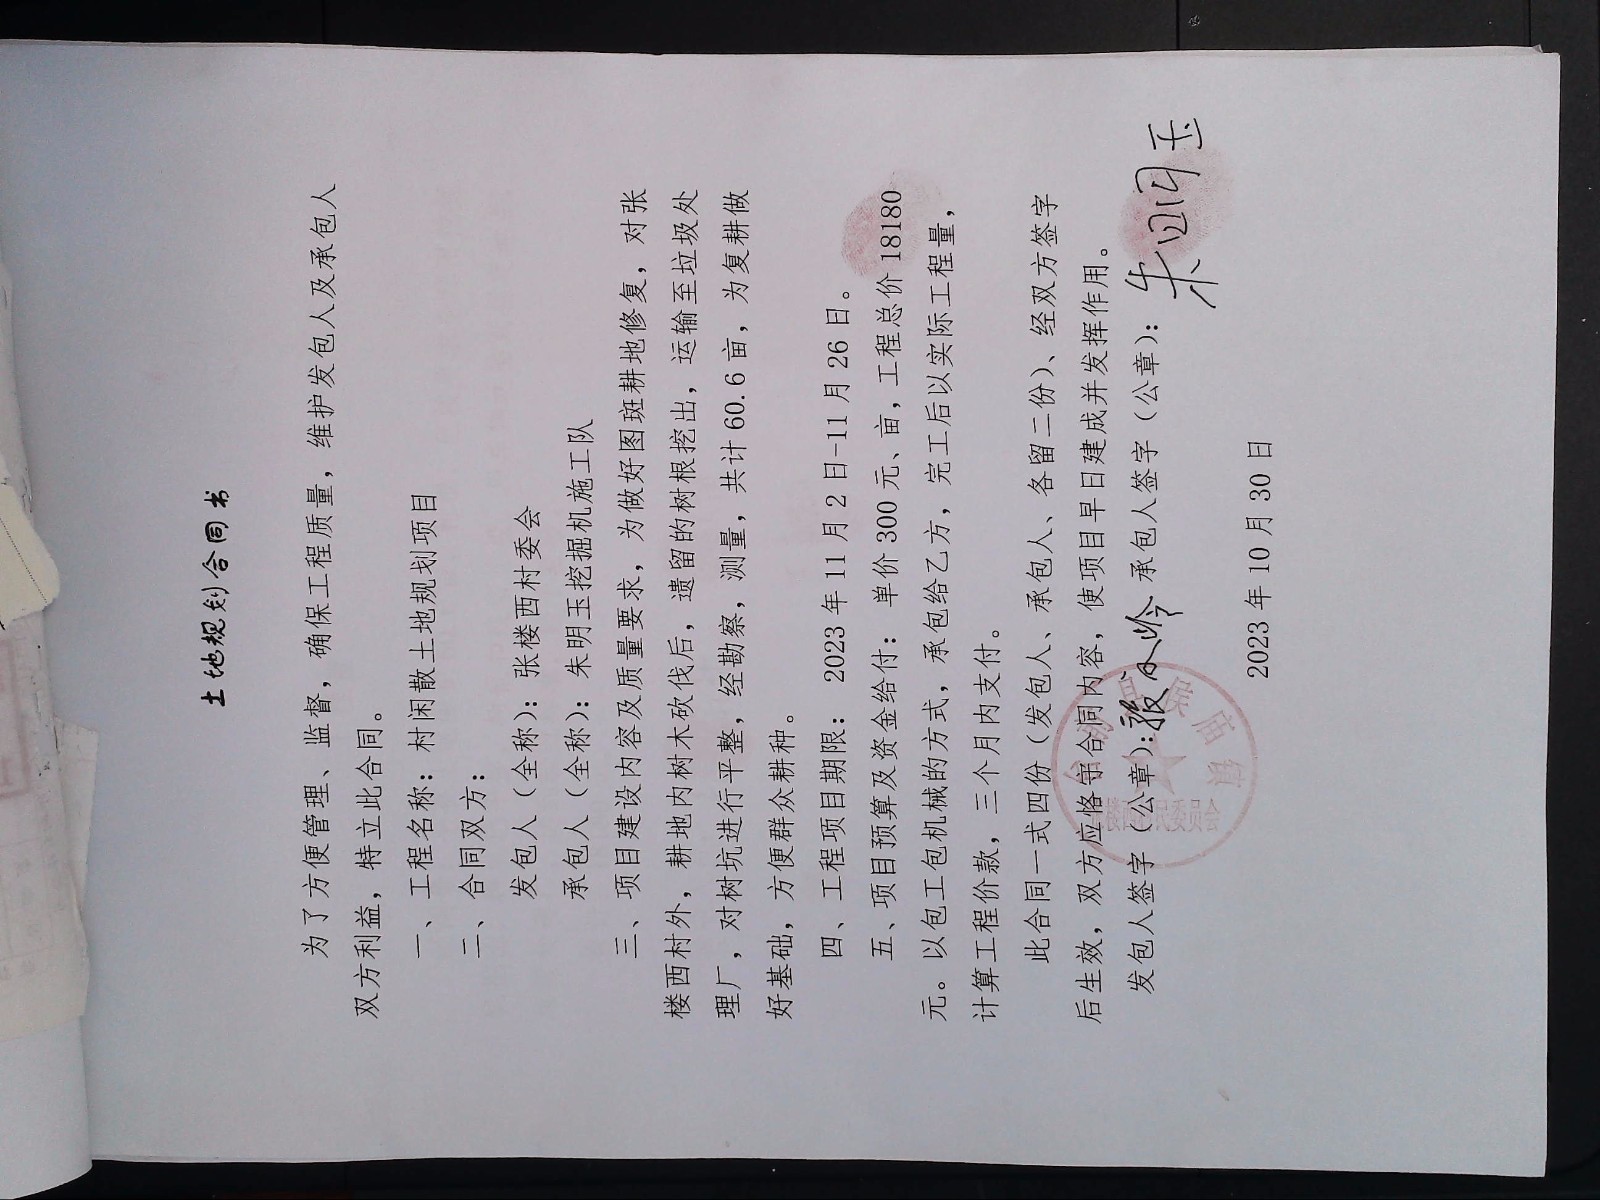 土地规划合同书
为了方便管理、监督，确保工程质量，维护发包人及承包人
双方利益，特立此合同。
一、工程名称：村闲散土地规划项目
二、合同双方：
发包人（全称）：张楼西村委会
承包人（全称）：朱明玉挖掘机施工队
三、项目建设内容及质量要求，为做好图斑耕地修复，对张
楼西村外，耕地内树木砍伐后，遗留的树根挖出，运输至垃圾处
理厂，对树坑进行平整，经勘察，测量，共计60.6亩，为复耕做
好基础，方便群众耕种。
四、工程项目期限： 2023年11月2日-11月26日。
五、项目预算及资金给付：单价300元、亩，工程总价18180
元。以包工包机械的方式，承包给乙方，完工后以实际工程量，
计算工程价款，三个月内支付。
此合同一式四份（发包人、承包人、各留二份）、经双方签字
后生效，双方应恪守合同内容，使项目早日建成并发挥作用。
发包人签字（公章）：张 承包人签字（公章）：朱明玉
2023年10月30日